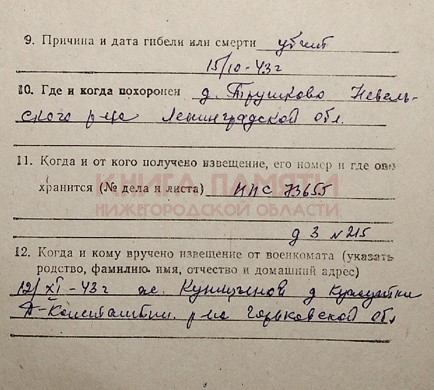 9. Причина и дата гибели или смерти убит
15/10-43г
10. Где и когда похоронен д. Трушково Невель-
ского р-на Ленинградской обл.
11. Когда и от кого получено извещение, его номер и где оно
хранится (№ дела и листа) ППС 73655
КНИГА ПАМЯТИ
НИЖЕГОРОДСКОЙ ОБЛАСТИ
д 3 №215
12. Когда и кому вручено извещение от военкомата (указать
родство, фамилию, имя, отчество и домашний адрес)
12/XI-43г д
Д-Константин. р-на Горьковской обл